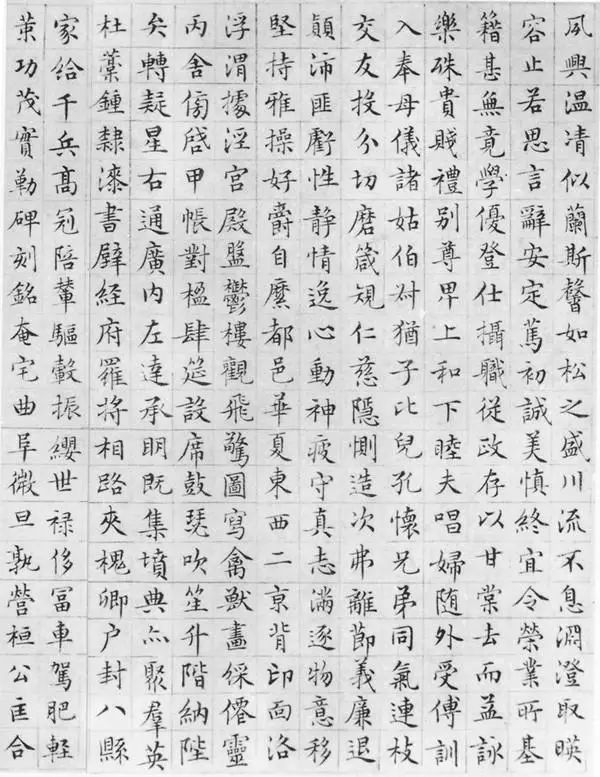 夙興温凊似蘭斯馨如松之盛川流不息淵澄取暎
容止若思言辭安定篤初誠美慎終宜令榮業所基
籍甚無竟學優登仕攝職從政存以甘棠去而益詠
樂殊貴賤禮別尊卑上和下睦夫唱婦随外受傅訓
入奉母儀諸姑伯叔猶子比兒孔懷兄弟同氣連枝
交友投分切磨箴規仁慈隱惻造次弗離節義廉退
顛沛匪虧性静情逸心動神疲守真志滿逐物意移
堅持雅操好爵自縻都邑華夏東西二京背邙面洛
浮渭據涇宮殿盤鬱樓觀飛驚圖寫禽獸畫綵僊靈
丙舍傍啓甲帳對楹肆筵設席鼓瑟吹笙升階納陛
弁轉疑星右通廣内左達承明既集墳典亦聚羣英
杜稾鍾隸漆書壁經府羅將相路夾槐卿户封八縣
家給千兵高冠陪輦驅轂振纓世禄侈冨車駕肥輕
策功茂實勒碑刻銘奄宅曲阜微旦孰營桓公匡合